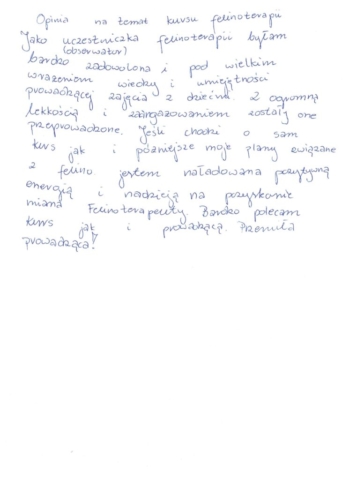 Opinia na temat kursu felinoterapii
Jako uczestniczka felinoterapii byłam
(obserwator)
bardzo zadowolona i pod wielkim
wrażeniem wiedzy i umiejętności
prowadzącej zajęcia z dziećmi. Z ogromną
lekkością i zaangażowaniem zostały one
przeprowadzone. Jeśli chodzi o sam
kurs jak i późniejsze moje plany związane
z felino jestem naładowana pozytywną
energią i nadzieją na pozyskanie
miana Felinoterapeuty. Bardzo polecam
kurs jak i prowadzącą. Przemiła
prowadząca!